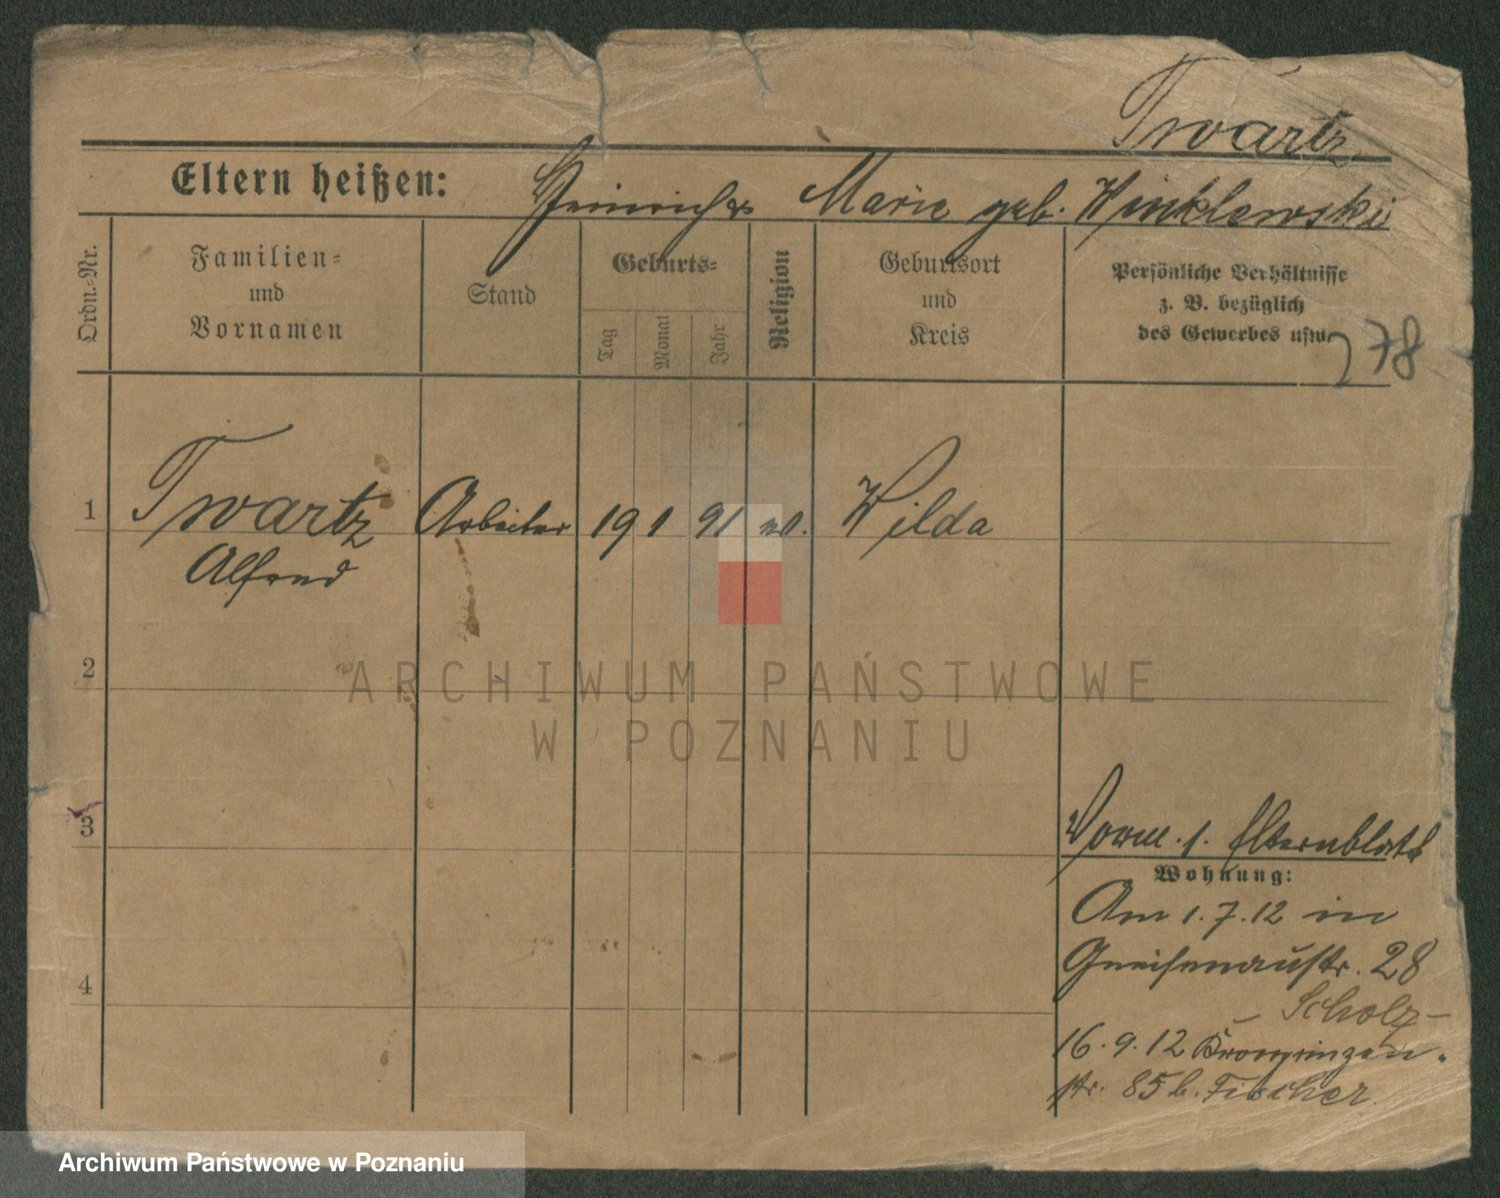 Twartz
Eltern heißen: Heinrich u. Marie geb. Winklewski
Ordn.-Nr.
Familien-
und
Vornamen
Stand
Geburts-
Tag
Monat
Jahr
Religion
Geburtsort
und
Kreis
Persönliche Verhältnisse
z. B. bezüglich
des Gewerbes usw.
78
1 Twartz Arbeiter 19 1 91 ev. Wilda
Alfred
2
3
Vorm. s. Elternblatt
Wohnung:
Am 1.7.12 in
Gneisenaustr. 28
4
– Scholz –
16.9.12 Kronprinzen-
str. 85 b. Fischer.
ARCHIWUM PAŃSTWOWE
W POZNANIU
Archiwum Państwowe w Poznaniu